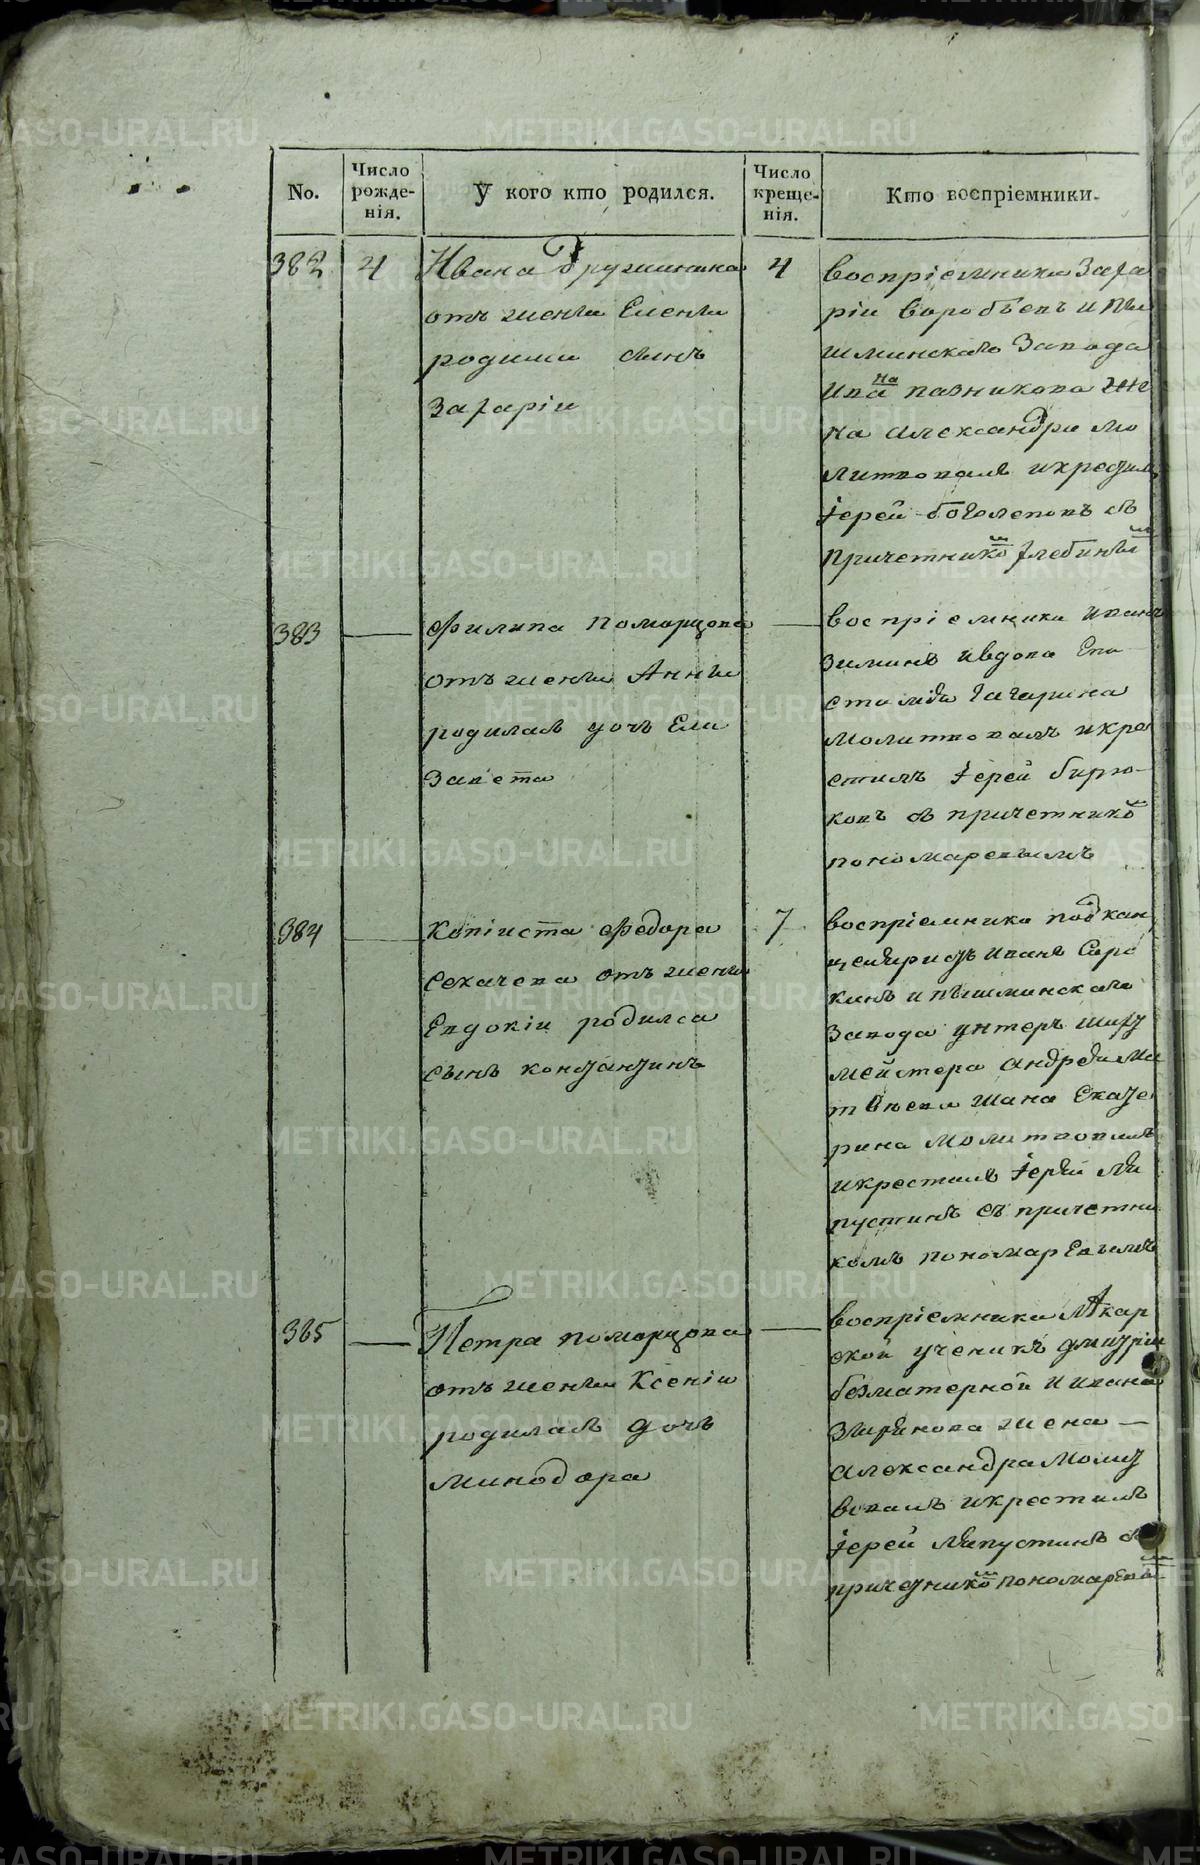 No.
Число рожде-нія.
У кого кто родился.
Число креще-нія.
Кто воспріемники.
382
4
Ивана Дружинина
отъ жены Елены
родился сынъ
Захарій
4
воспріемники Заха
рій Воробьевъ и Пы
шминскаго Завода
Ивана
жена Александра мо
литвовалъ и крестилъ
Іерей Боголеповъ съ
причетникомъ
383
Филипа Поморцова
отъ жены Анны
родилась дочь Ели
завета
воспріемники Иванъ
Зиминъ и вдова
Гагарина
молитвовалъ и кре
стилъ Іерей Бирю-
ковъ съ причетникомъ
пономаревымъ
384
Копіиста Федора
Секачева отъ жены
Евдокіи родился
сынъ Константинъ
7
воспріемники подкан
целяристъ Иванъ Соро
кинъ и Пышминскаго
Завода унтеръ шихт
мейстера Андрея Ма
твѣева жена Екате
рина молитвовалъ
и крестилъ Іерей Ля
пустинъ съ причетни
комъ пономаревымъ
385
Петра Поморцова
отъ жены Ксеніи
родилась дочь
Минодора
воспріемники
ской ученикъ Дмитрій
безматерной и Ивана
жена —
Александра Молит
вовалъ и крестилъ
Іерей Ляпустинъ съ
причетникомъ пономаревымъ
METRIKI.GASO-URAL.RU